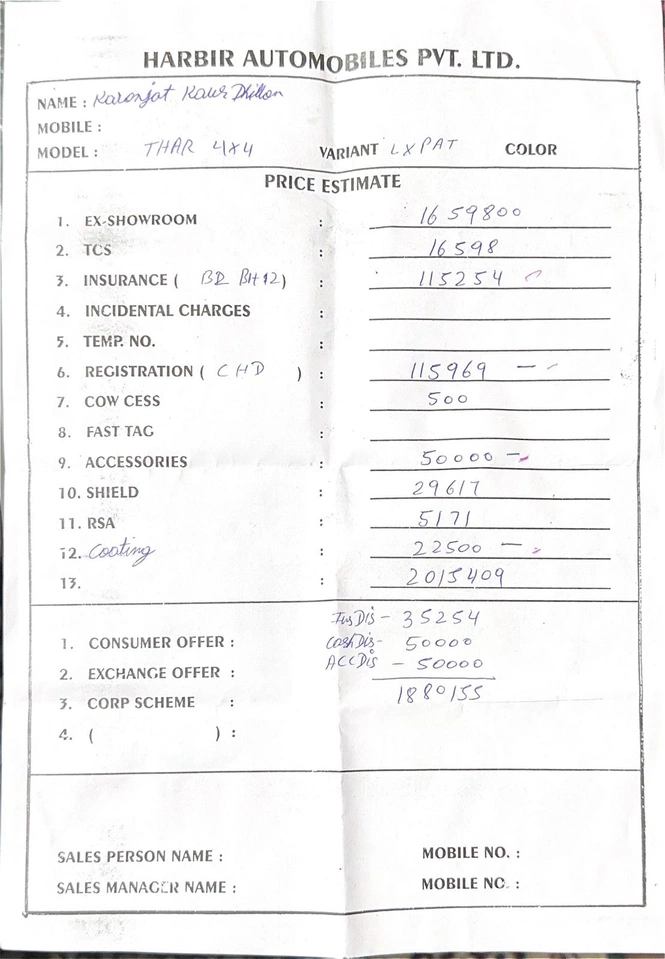 HARBIR AUTOMOBILES PVT. LTD.
NAME : Karonjot Kaur Dhillon
MOBILE :
MODEL : THAR 4x4 VARIANT LXPAT COLOR
PRICE ESTIMATE
1. EX-SHOWROOM : 1659800
2. TCS : 16598
3. INSURANCE ( BD BH12) : 115254
4. INCIDENTAL CHARGES :
5. TEMP. NO. :
6. REGISTRATION ( CHD ) : 115969 -
7. COW CESS : 500
8. FAST TAG :
9. ACCESSORIES : 50000 -
10. SHIELD : 29617
11. RSA : 5171
12. Coating : 22500 -
13. : 2015409
InsDis - 35254
1. CONSUMER OFFER : CashDis- 50000
2. EXCHANGE OFFER : ACCDis - 50000
3. CORP SCHEME : 1880155
4. ( ) :
SALES PERSON NAME : MOBILE NO. :
SALES MANAGER NAME : MOBILE NO. :